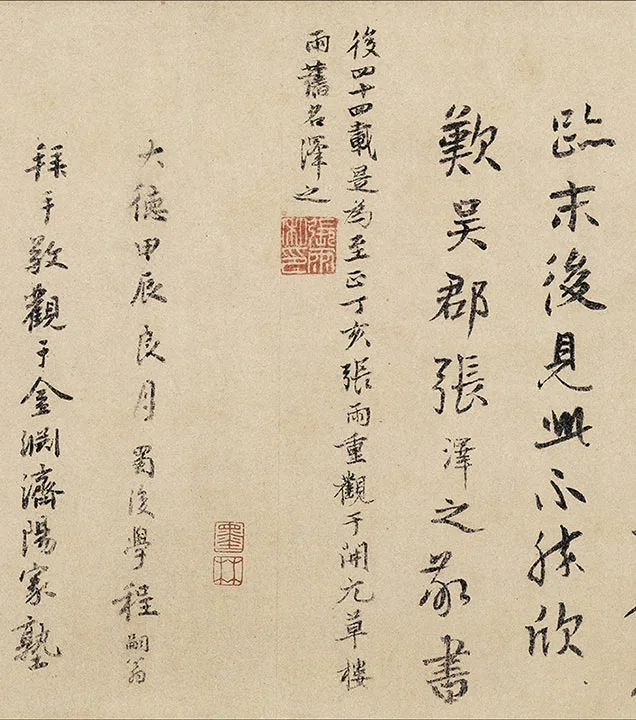 臨末後見此不勝欣
歎吳郡張澤之敬書
後四十四載是為至正丁亥張雨重觀于開元草樓
雨舊名澤之
張雨私印
墨林
大德甲辰良月蜀後學程嗣翁
拜手敬觀于金淵濟陽家塾